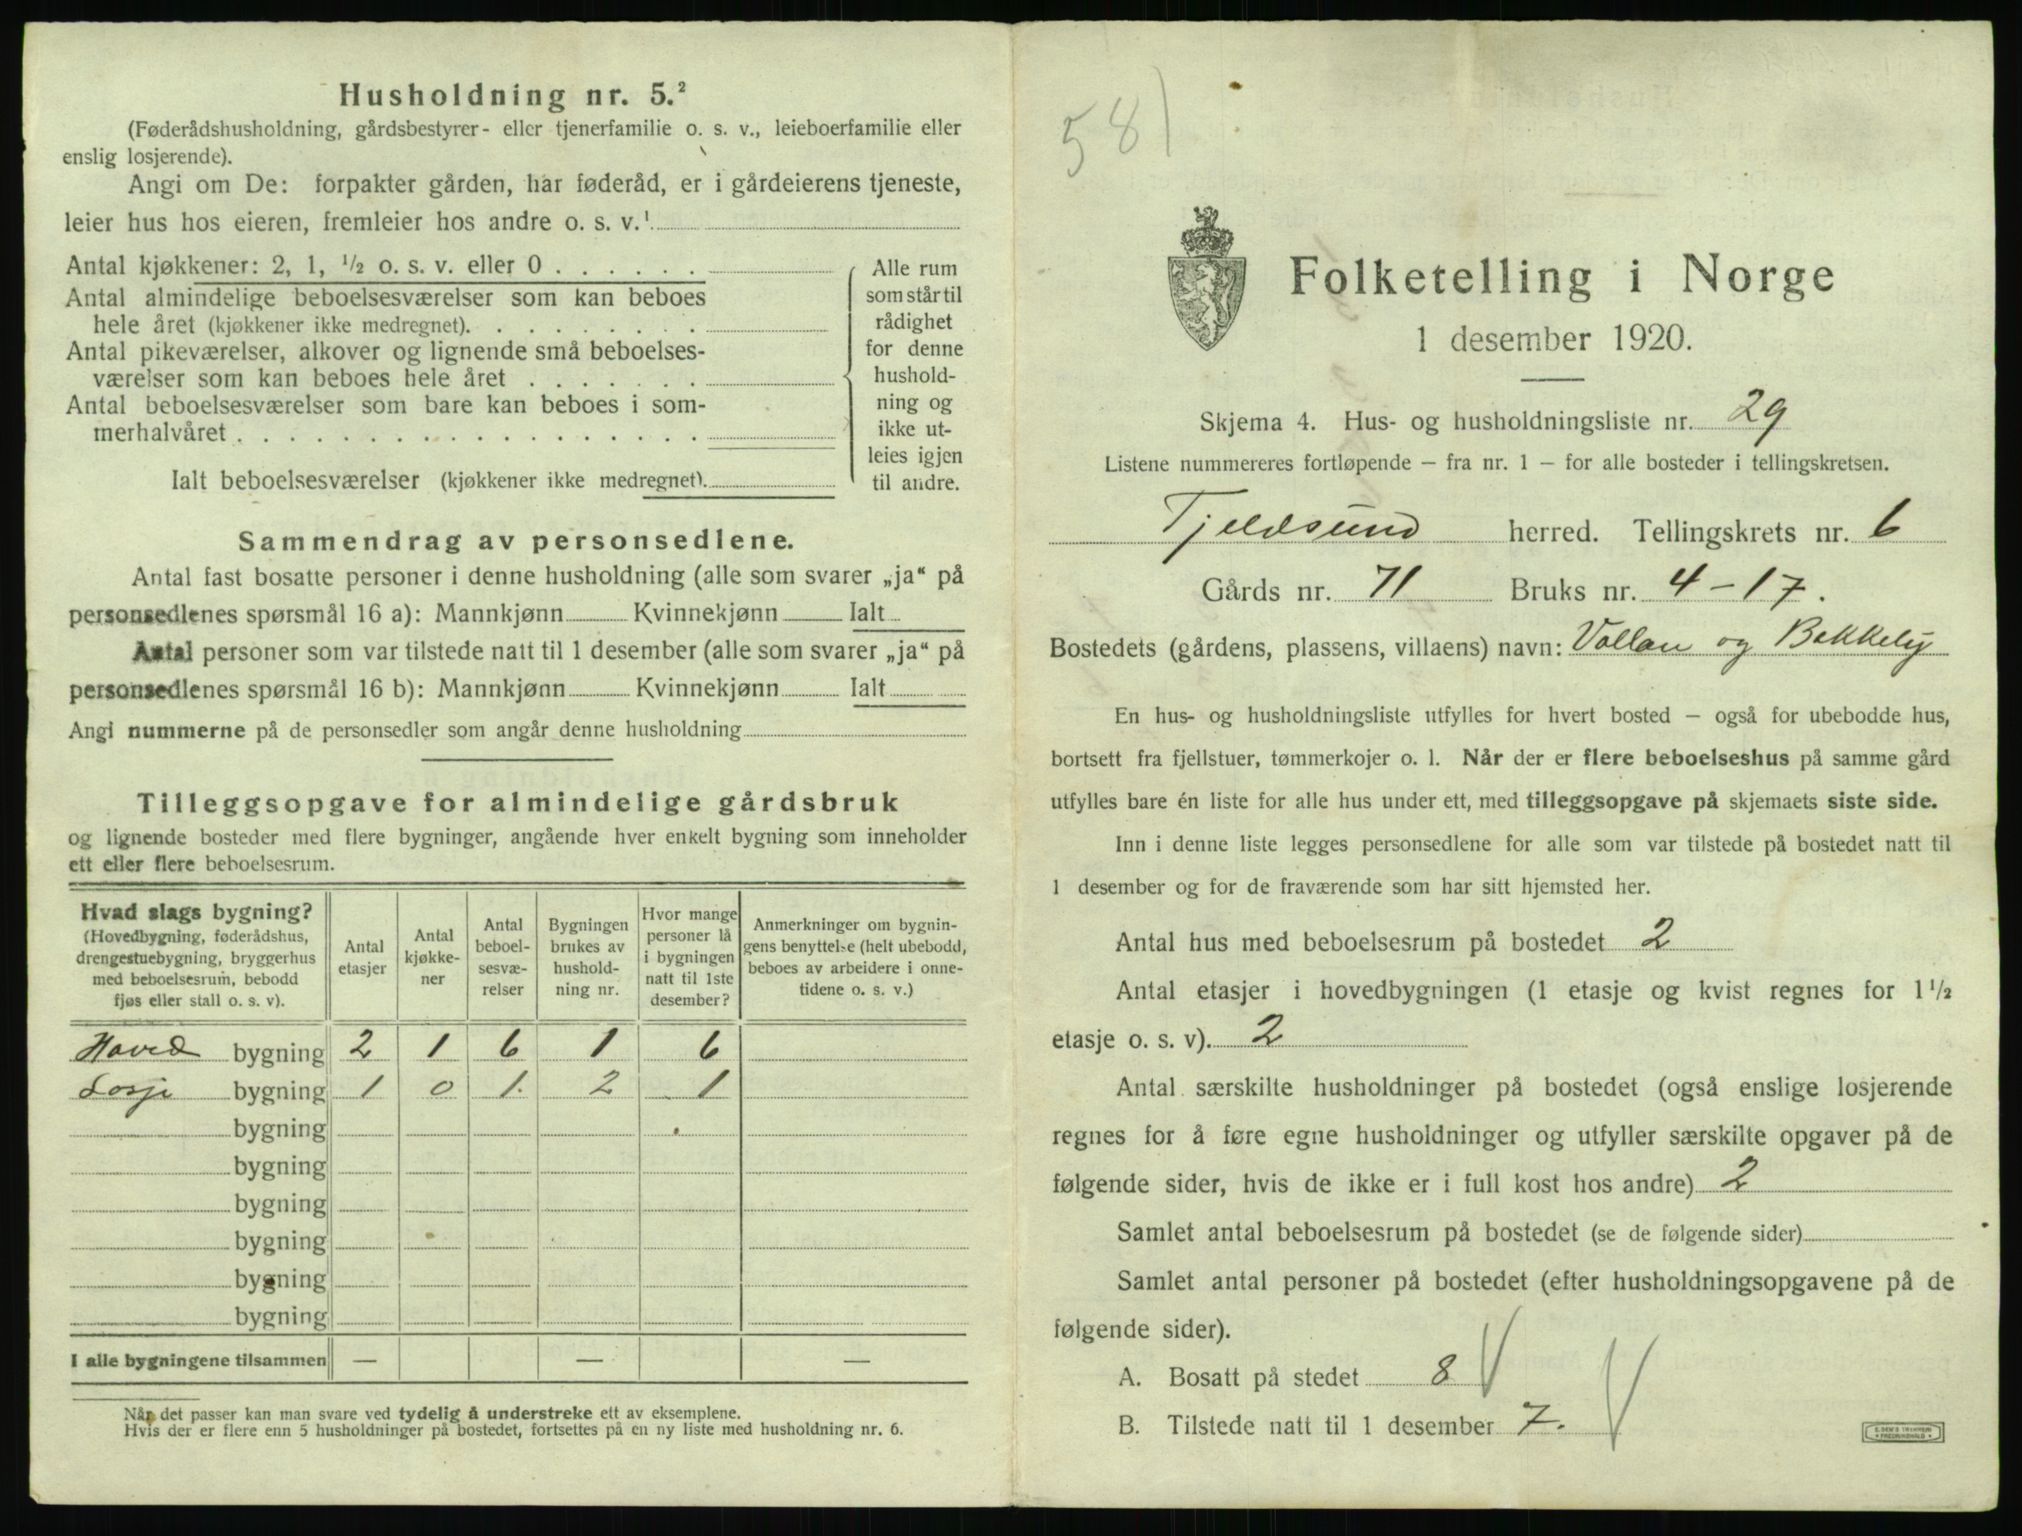 Husholdning nr. 5.²
(Føderådshusholdning, gårdsbestyrer- eller tjenerfamilie o. s. v., leieboerfamilie eller
enslig losjerende).
Angi om De: forpakter gården, har føderåd, er i gårdeierens tjeneste,
leier hus hos eieren, fremleier hos andre o. s. v.¹
Antal kjøkkener: 2, 1, ½ o. s. v. eller 0 . . . . . .
Antal almindelige beboelsesværelser som kan beboes
hele året (kjøkkener ikke medregnet). . . . . . . . .
Antal pikeværelser, alkover og lignende små beboelses-
værelser som kan beboes hele året . . . . . . .
Antal beboelsesværelser som bare kan beboes i som-
merhalvåret . . . . . . . . . . . . . . . . . .
Ialt beboelsesværelser (kjøkkener ikke medregnet).
Alle rum
som står til
rådighet
for denne
hushold-
ning og
ikke ut-
leies igjen
til andre.
Sammendrag av personsedlene.
Antal fast bosatte personer i denne husholdning (alle som svarer „ja“ på
personsedlenes spørsmål 16 a): Mannkjønn Kvinnekjønn Ialt
Antal personer som var tilstede natt til 1 desember (alle som svarer „ja“ på
personsedlenes spørsmål 16 b): Mannkjønn Kvinnekjønn Ialt
Angi nummerne på de personsedler som angår denne husholdning
Tilleggsopgave for almindelige gårdsbruk
og lignende bosteder med flere bygninger, angående hver enkelt bygning som inneholder
ett eller flere beboelsesrum.
Hvad slags bygning?
(Hovedbygning, føderådshus,
drengestuebygning, bryggerhus
med beboelsesrum, bebodd
fjøs eller stall o. s. v).
Antal
etasjer
Antal
kjøkke-
ner
Antal
beboel-
sesvæ-
relser
Bygningen
brukes av
hushold-
ning nr.
Hvor mange
personer lå
i bygningen
natt til 1ste
desember?
Anmerkninger om bygnin-
gens benyttelse (helt ubebodd,
beboes av arbeidere i onne-
tidene o. s. v.)
Hoved bygning 2 1 6 1 6
Losje bygning 1 0 1. 2 1
bygning
bygning
bygning
bygning
bygning
bygning
I alle bygningene tilsammen — — —
Når det passer kan man svare ved tydelig å understreke ett av eksemplene.
Hvis der er flere enn 5 husholdninger på bostedet, fortsettes på en ny liste med husholdning nr. 6.
581
Folketelling i Norge
1 desember 1920.
Skjema 4. Hus- og husholdningsliste nr. 29
Listene nummereres fortløpende — fra nr. 1 — for alle bosteder i tellingskretsen.
Tjeldsund herred. Tellingskrets nr. 6
Gårds nr. 71 Bruks nr. 4-17.
Bostedets (gårdens, plassens, villaens) navn: Vollan og Bakkely
En hus- og husholdningsliste utfylles for hvert bosted — også for ubebodde hus,
bortsett fra fjellstuer, tømmerkojer o. l. Når der er flere beboelseshus på samme gård
utfylles bare én liste for alle hus under ett, med tilleggsopgave på skjemaets siste side.
Inn i denne liste legges personsedlene for alle som var tilstede på bostedet natt til
1 desember og for de fraværende som har sitt hjemsted her.
Antal hus med beboelsesrum på bostedet 2
Antal etasjer i hovedbygningen (1 etasje og kvist regnes for 1½
etasje o. s. v). 2
Antal særskilte husholdninger på bostedet (også enslige losjerende
regnes for å føre egne husholdninger og utfyller særskilte opgaver på de
følgende sider, hvis de ikke er i full kost hos andre) 2
Samlet antal beboelsesrum på bostedet (se de følgende sider)
Samlet antal personer på bostedet (efter husholdningsopgavene på de
følgende sider).
A. Bosatt på stedet 8
B. Tilstede natt til 1 desember 7.